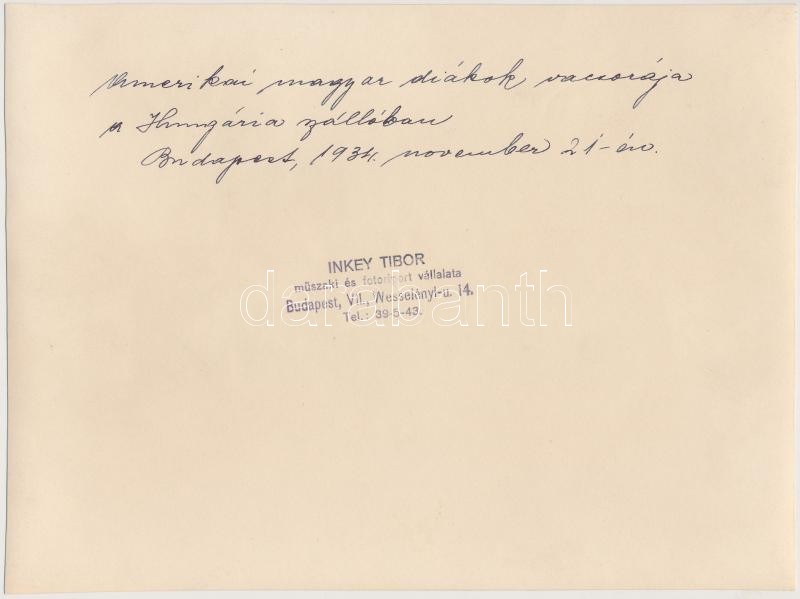 Amerikai magyar diákok vacsorája
a Hungária szállóban
Budapest, 1934. november 21-én.
INKEY TIBOR
műszaki és fotoriport vállalata
Budapest, VII., Wesselényi-u. 14.
Tel.: 39-5-43.
darabanth